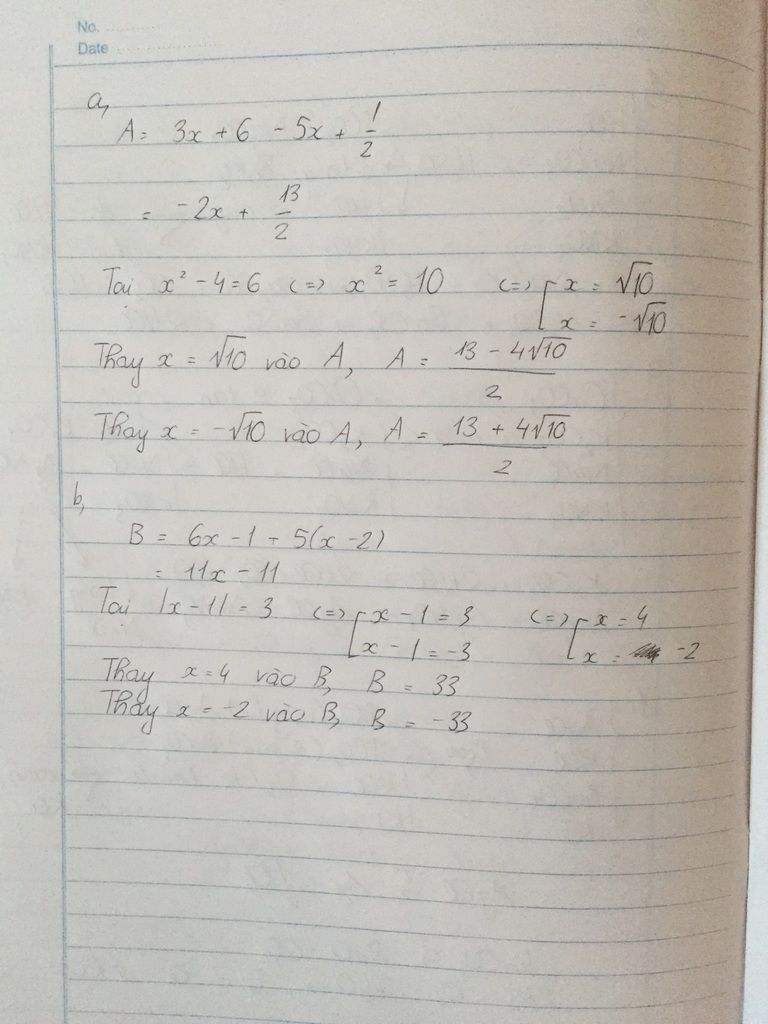 No. ............
Date ........................
a,
A = 3x + 6 - 5x + 1/2
= -2x + 13/2
Tại x² - 4 = 6 <=> x² = 10 <=> [ x = √10
x = -√10
Thay x = √10 vào A, A = (13 - 4√10)/2
Thay x = -√10 vào A, A = (13 + 4√10)/2
b,
B = 6x - 1 + 5(x - 2)
= 11x - 11
Tại |x - 1| = 3 <=> [ x - 1 = 3 <=> [ x = 4
x - 1 = -3 x = -2
Thay x = 4 vào B, B = 33
Thay x = -2 vào B, B = -33